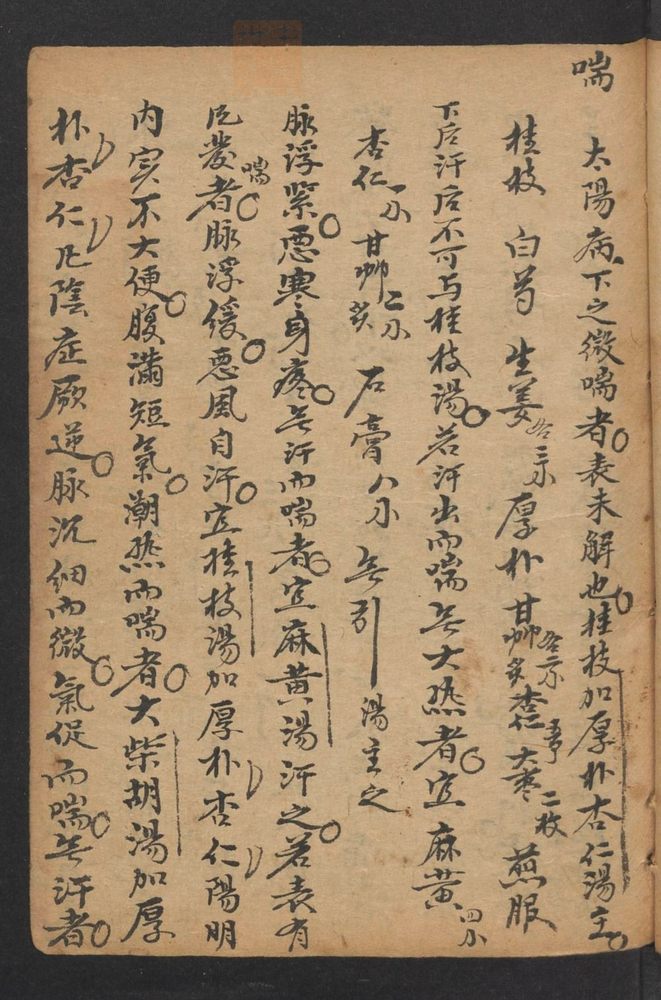 喘
太陽病下之微喘者表未解也桂枝加厚朴杏仁湯主
桂枝 白芍 生姜各三小 厚朴 甘艸炙各二小 杏仁 大枣二枚 煎服
下后汗后不可与桂枝湯若汗出而喘无大热者宜麻黄四小
杏仁一小 甘艸炙二小 石膏八小 无引 湯主之
脉浮紧恶寒身疼无汗而喘者宜麻黄湯汗之若表有
汜發喘者脉浮缓恶風自汗宜桂枝湯加厚朴杏仁陽明
内实不大便腹满短氣潮热而喘者大柴胡湯加厚
朴杏仁凡陰症厥逆脉沉细而微氣促而喘无汗者